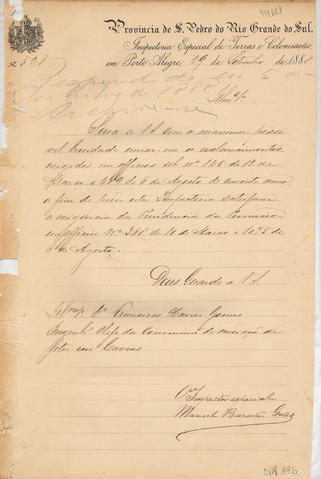 Provincia de S. Pedro do Rio Grande do Sul.
Inspectoria Especial de Terras e Colonisação,
em Porto Alegre, 29 de Setembro de 1888
Nº 521
Respondido em 5 de
de 1888
Archive-se
Sirva-se Vsª com a maxima possi-
vel brevidade enviar-me os esclarecimentos
exigidos em officios sob nº de 12 de
Março e de 6 de Agosto do corrente anno
a fim de poder esta Inspectoria satisfazer
a exigencia da Presidencia da Provincia
em officios Nº de 10 de Março e Nº 5 de
de Agosto.
Deus Guarde a Vsª
Illmº Sr Dr Francisco Xavier Gomes
Engenhº Chefe da Commissão de medição de
lotes em Caxias
O Inspector especial
Manoel Barata Góes
D/A 886